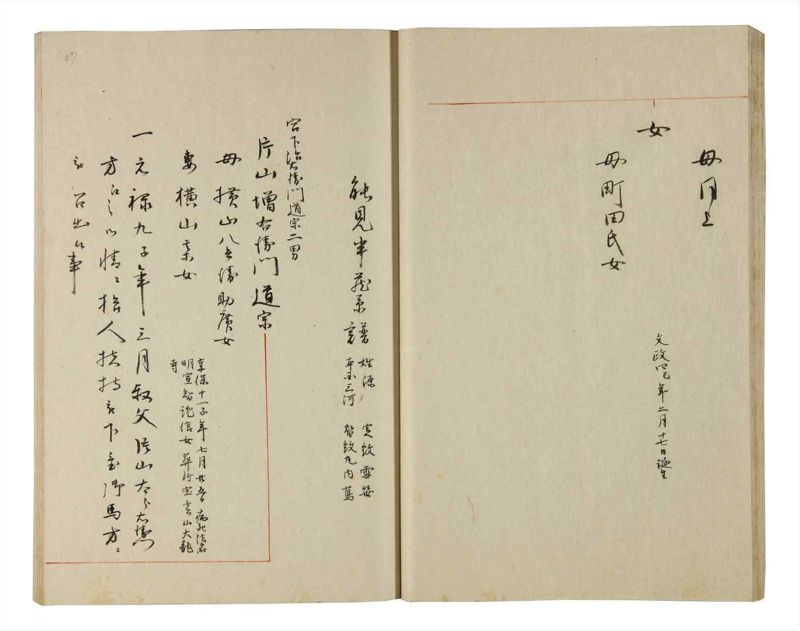 母同上
女
母町田氏女
文政四巳年二月十七日誕生
能見半蔵系譜
姓源 定紋雪笹
本国三河 替紋丸内蔦
宮下治右衛門道宗二男
片山増右衛門道宗
母横山八兵衛助廣女
妻横山某女
享保十一子年七月廿 病死法名
明室智 信女 葬所宝雲山大龍
寺
一元禄九子年三月叙父片山太郎右衛門
方 人扶持 下置御馬方
召出候事